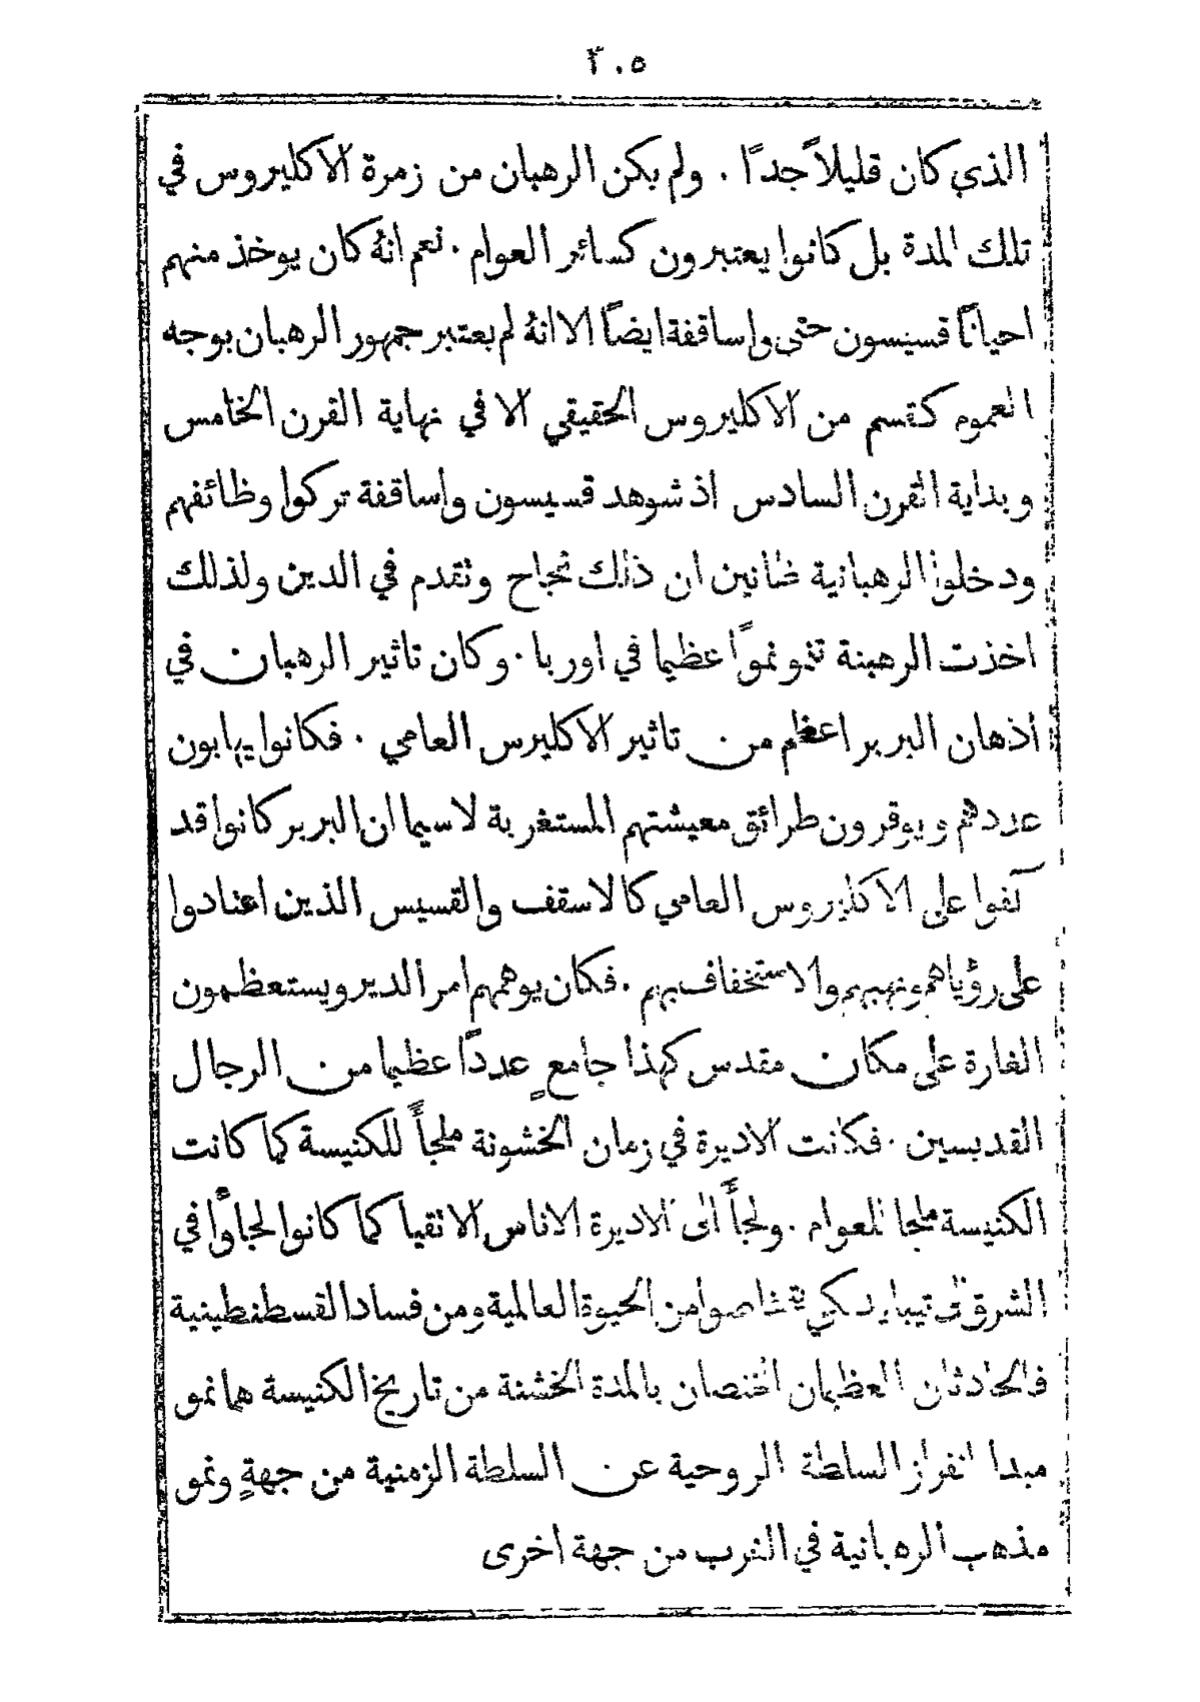 ٣٠٥
الذي كان قليلاً جدًا . ولم يكن الرهبان من زمرة الاكليروس في
تلك المدة بل كانوا يعتبرون كسائر العوام . نعم انهُ كان يوخذ منهم
احيانًا قسيسون حتى واساقفة ايضًا الا انهُ لم يعتبر جمهور الرهبان بوجه
العموم كقسم من الاكليروس الحقيقي الا في نهاية القرن الخامس
وبداية القرن السادس اذ شوهد قسيسون واساقفة تركوا وظائفهم
ودخلوا الرهبانية ظانين ان ذلك نجاح وتقدم في الدين ولذلك
اخذت الرهبنة تنمو نموًا عظيما في اوربا . وكان تاثير الرهبان في
أذهان البربر اعظم من تاثير الاكليرس العامي . فكانوا يهابون
عددهم ويوقرون طرائق معيشتهم المستغربة لاسيما ان البربر كانوا قد
آلفوا على الاكليروس العامي كالاسقف والقسيس الذين اعتادوا
على رؤياهم ونهبهم والاستخفاف بهم . فكان يوهمهم امر الدير ويستعظمون
الغارة على مكان مقدس كهذا جامعٍ عددًا عظيما من الرجال
القديسين . فكانت الاديرة في زمان الخشونة ملجأً للكنيسة كما كانت
الكنيسة ملجا للعوام . ولجأ الى الاديرة الاناس الاتقيا كما كانوا لجاوا في
الشرق الى تيبايد كي يتخاصوا من الحيوة العالمية ومن فساد القسطنطينية
فالحادثان العظيمان المختصان بالمدة الخشنة من تاريخ الكنيسة هما نمو
مبدا انفراز السلطة الروحية عن السلطة الزمنية من جهةٍ ونمو
مذهب الرهبانية في الغرب من جهة اخرى